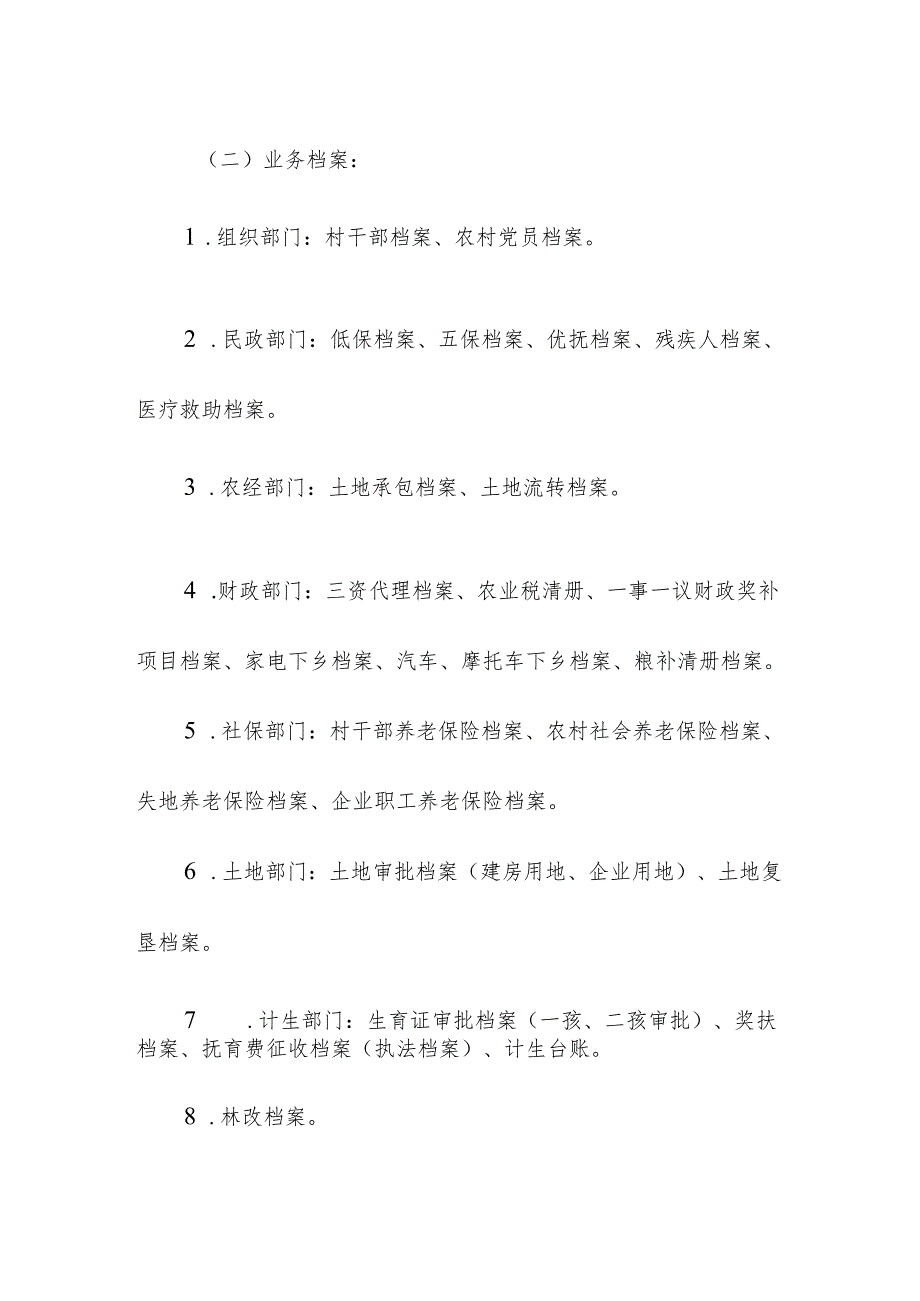 （二）业务档案：
1 .组织部门：村干部档案、农村党员档案。
2 .民政部门：低保档案、五保档案、优抚档案、残疾人档案、
医疗救助档案。
3 .农经部门：土地承包档案、土地流转档案。
4 .财政部门：三资代理档案、农业税清册、一事一议财政奖补
项目档案、家电下乡档案、汽车、摩托车下乡档案、粮补清册档案。
5 .社保部门：村干部养老保险档案、农村社会养老保险档案、
失地养老保险档案、企业职工养老保险档案。
6 .土地部门：土地审批档案（建房用地、企业用地）、土地复
垦档案。
7 .计生部门：生育证审批档案（一孩、二孩审批）、奖扶
档案、抚育费征收档案（执法档案）、计生台账。
8 .林改档案。